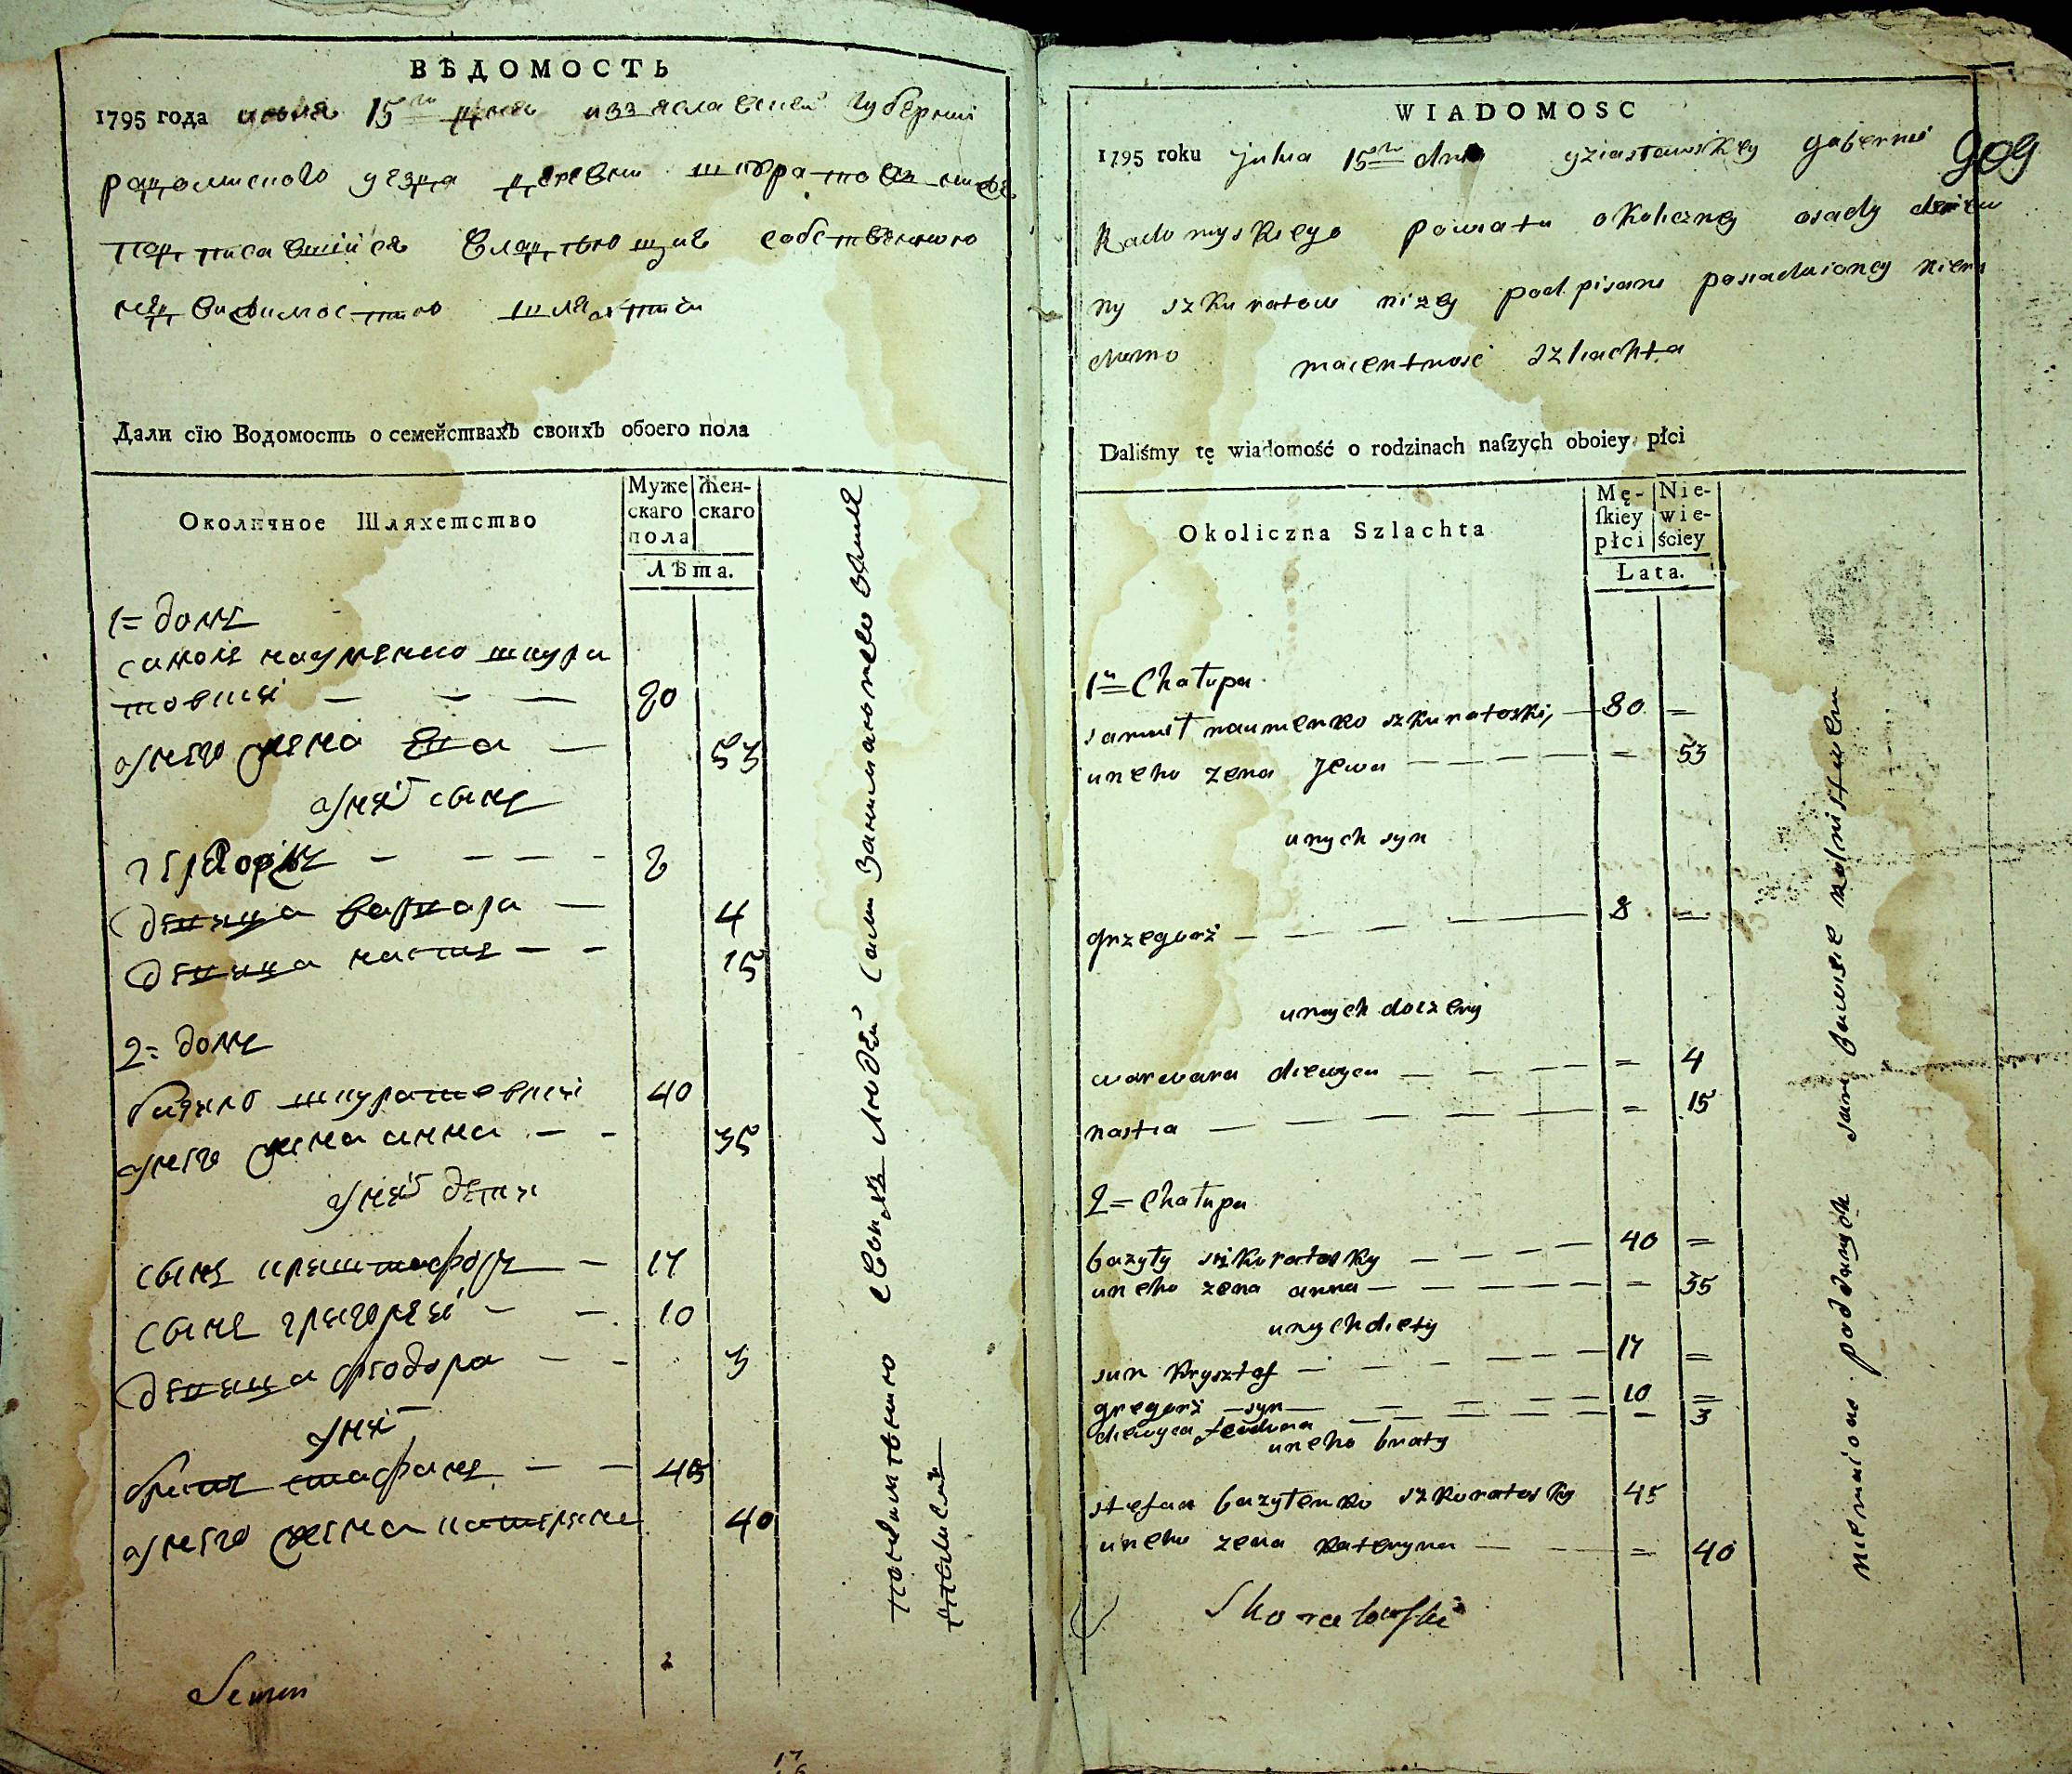 ВѢДОМОСТЬ
1795 года июля 15го дня изяславской губернiи
радомисного уезда деревни шкуратовъ ниже
подписавшiися владѣющие собственною
недвижимостию шляхтiи
Дали сїю Водомость о семействахъ своихъ обоего пола
Околичное Шляхетство
Муже
скаго
пола
Жен-
скаго
Лѣта.
1= домъ
самоле науменко шкура
товкиi — — — 80
унего жена Ева — 53
унихъ сынъ
григорiй — — — — 8
девица варвара — 4
девица настя — — 15
2= домъ
базило шкуратовскiи 40
унего жена анна — — 35
унихъ дети
сынъ криштофоръ — 17
сынъ григореи — — 10
девица феодора — — 3
унихъ
братъ стафанъ — — 45
унего жена катерина 40
Semen
своихъ людей сами
WIADOMOSC
1795 roku julia 15go dnia yziasławskiey gubernii 909
Radomyskiego powiatu okoliczney osady derew
ny szkuratow nizey podpisani posiadaioncy nieru
chomo maientnosć szlachta
Daliśmy tę wiadomość o rodzinach naſzych oboiey płci
Okoliczna Szlachta
Mę-
ſkiey
płci
Nie-
wie-
ściey
Lata.
1a= Chałupa
samuł naumenko szkuratoski, — 80 =
uneho zena Jewa — — — — = 53
unych syn
grzegorż — — — — — 8 =
unych doczery
warwara diewyca — — — — = 4
nastia — — — — — = 15
2= Chałupa
bazyły szkuratosky — — — — 40 =
uneho zena anna — — — — — = 35
unych diety
sun krysztof — — — — — — 17 =
gregorż — syn — — — — — 10 =
diewyca feodora — — — — — 3
uneho braty
stefan bazyłenko szkuratosky 45
uneho zena kateryna — — = 40
Skoratowski
poddanych sami